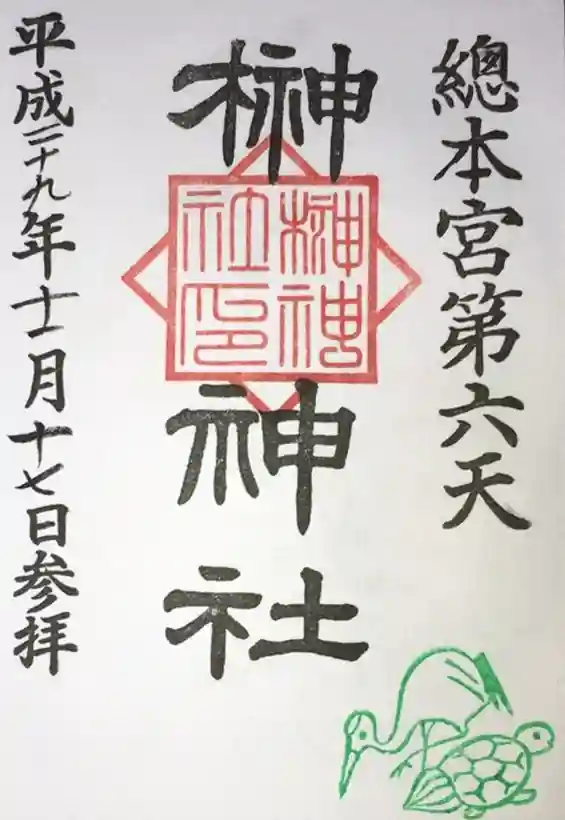 總本宮第六天
榊神社
榊神社印
平成二十九年十二月十七日参拝